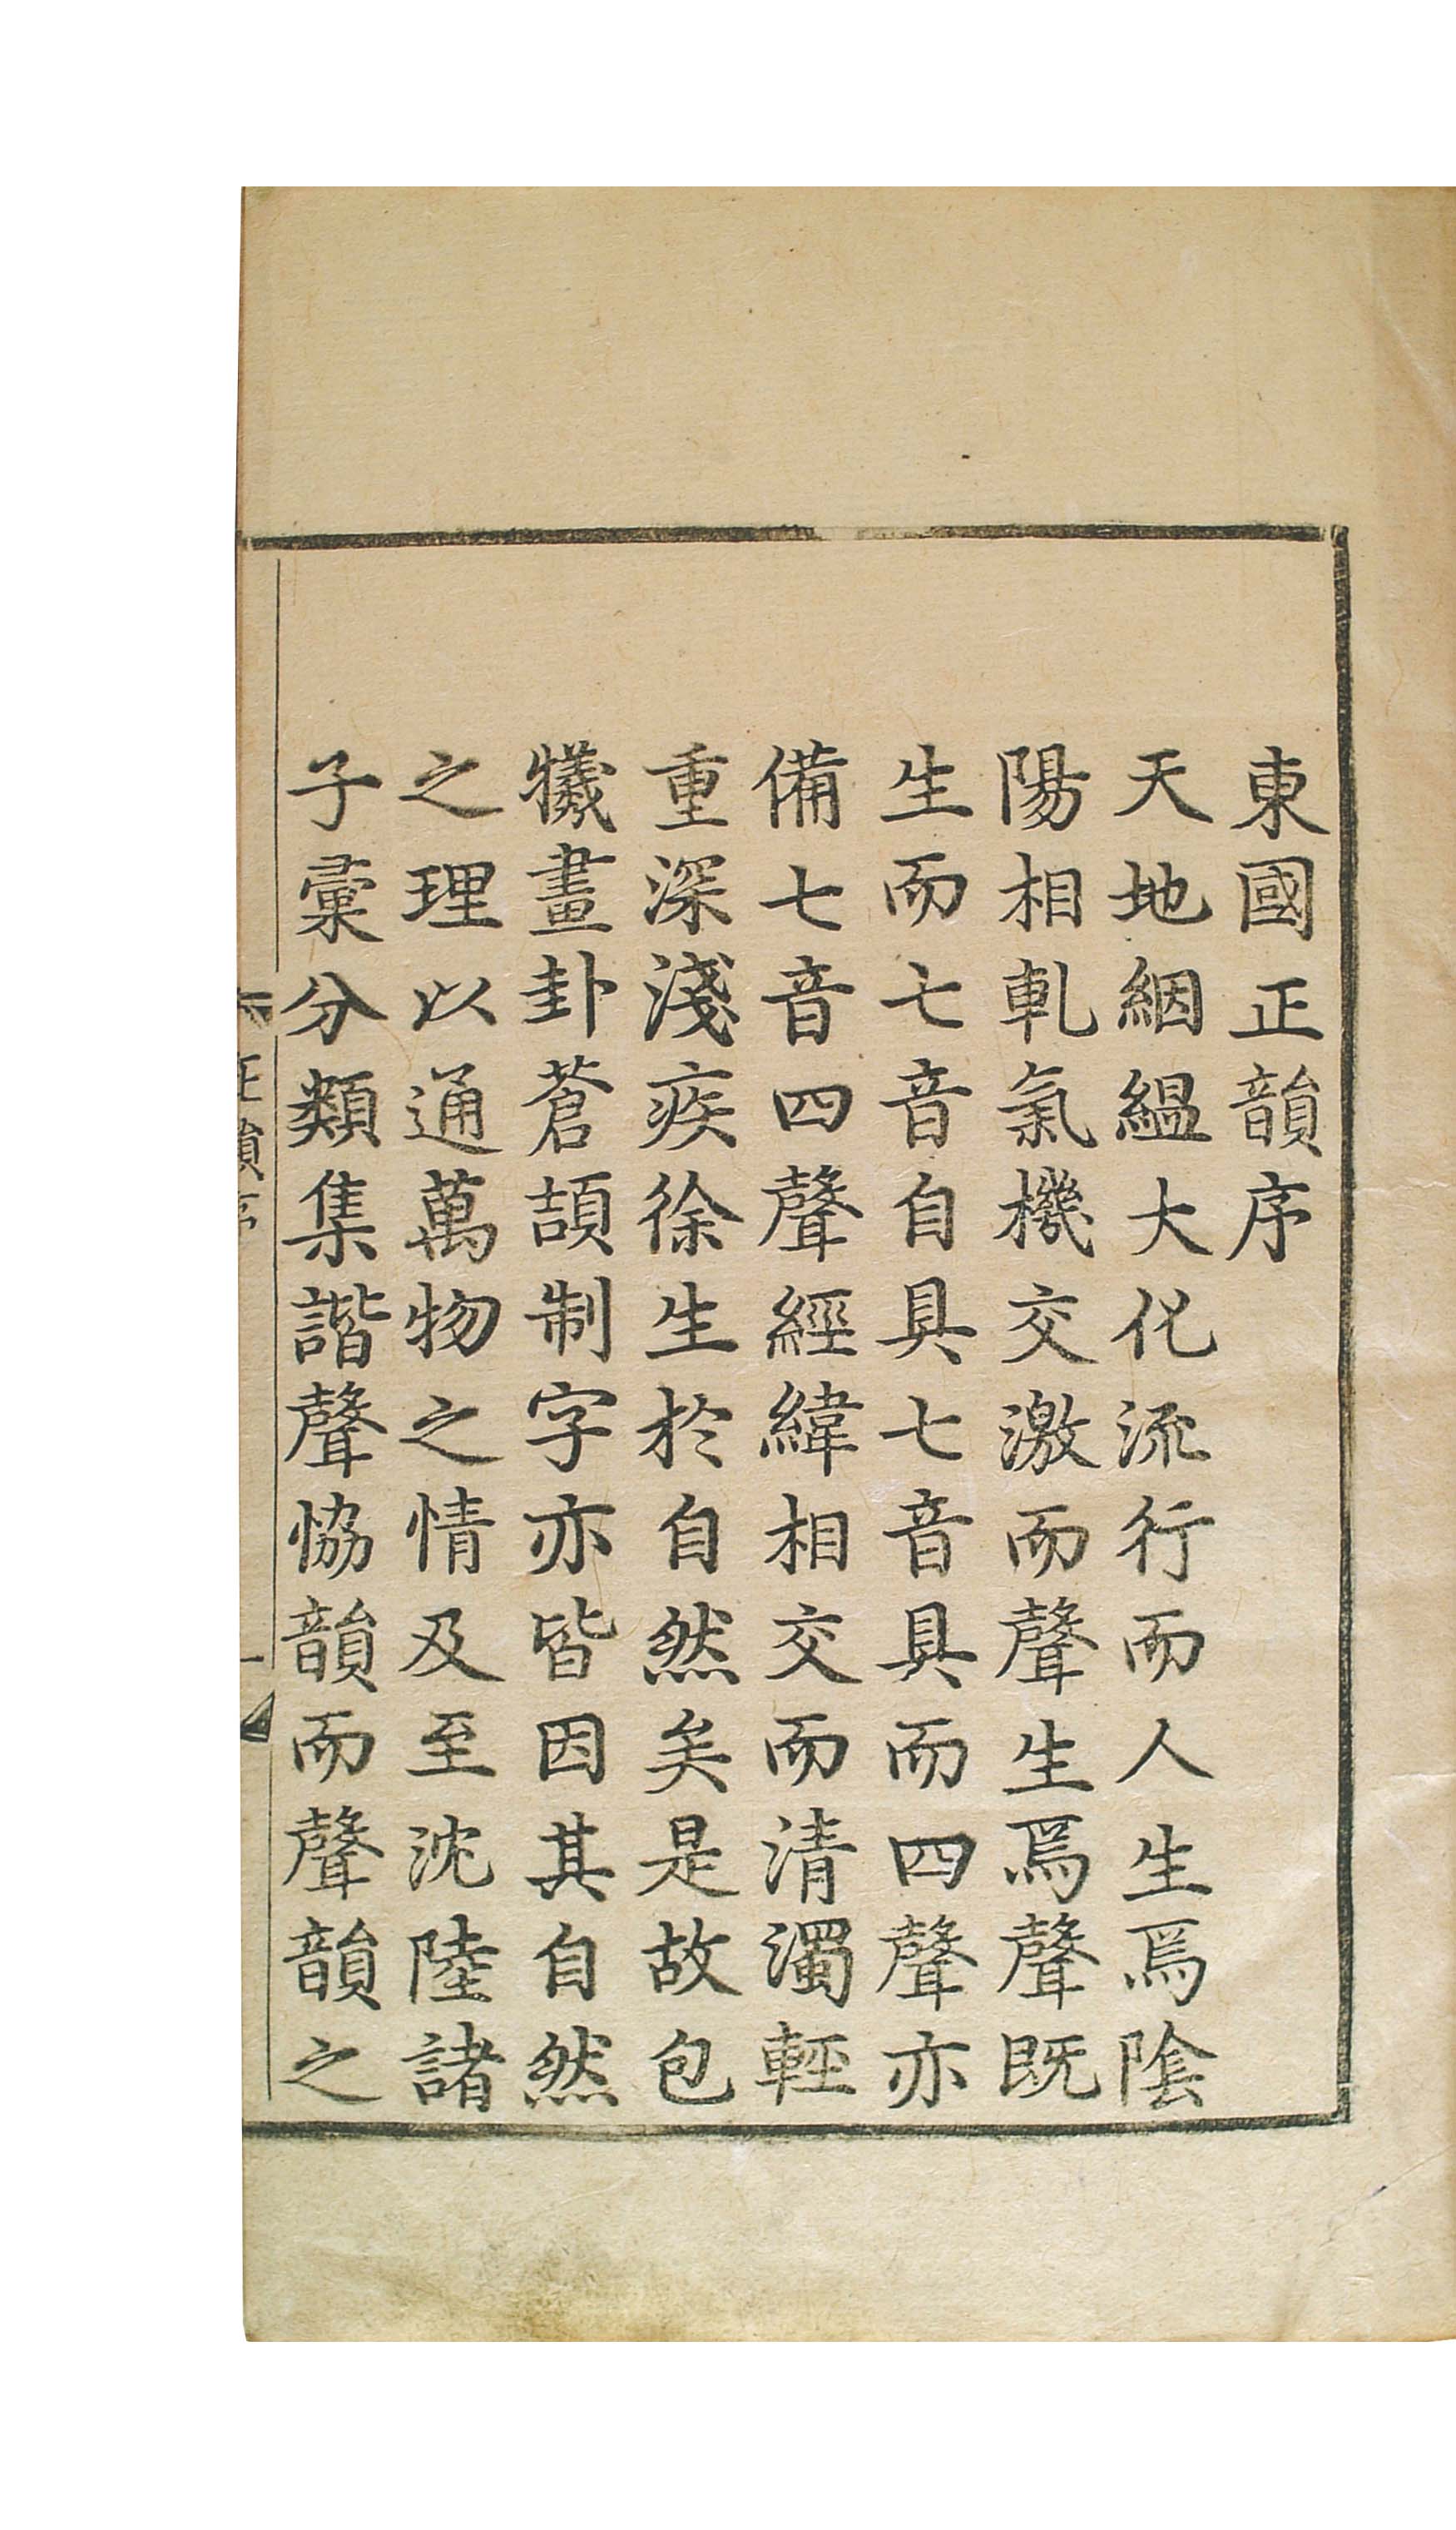 東國正韻序
天地絪縕大化流行而人生焉陰
陽相軋氣機交激而聲生焉聲既
生而七音自具七音具而四聲亦
備七音四聲經緯相交而清濁輕
重深淺疾徐生於自然矣是故包
犧畫卦蒼頡制字亦皆因其自然
之理以通萬物之情及至沈陸諸
子彙分類集諧聲恊韻而聲韻之
正韻序
一